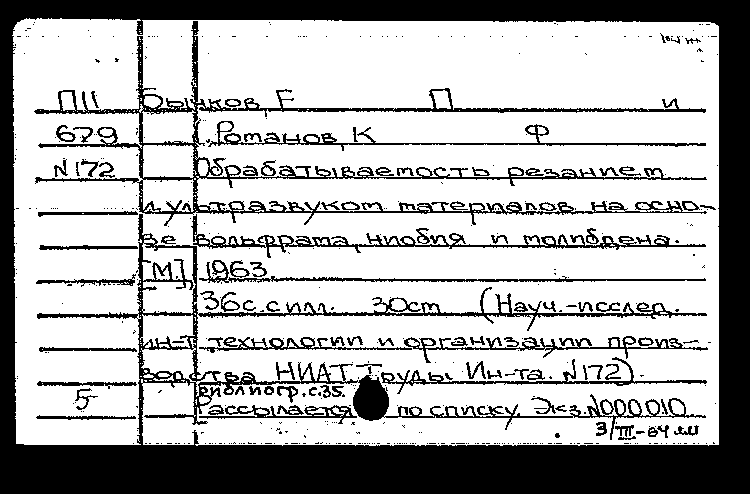 П11 Бычков, Е П и
679 Романов, К Ф
N172 Обрабатываемость резанием
и ультразвуком материалов на осно-
ве вольфрама, ниобия и молибдена.
[М.], 1963.
36с. с илл. 30см (Науч.-исслед.
ин-т технологии и организации произ-
водства НИАТ Труды Ин-та. N172).
Библиогр. с.35.
5 Рассылается по списку. Экз. N000010
3/III-64